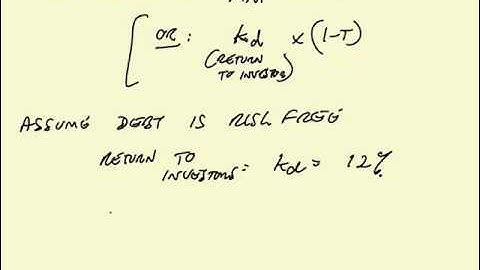 [ OR: kd × (1-T)
(RETURN
TO INVESTORS)
ASSUME DEBT IS RISK FREE
RETURN TO
INVESTORS = kd = 12%